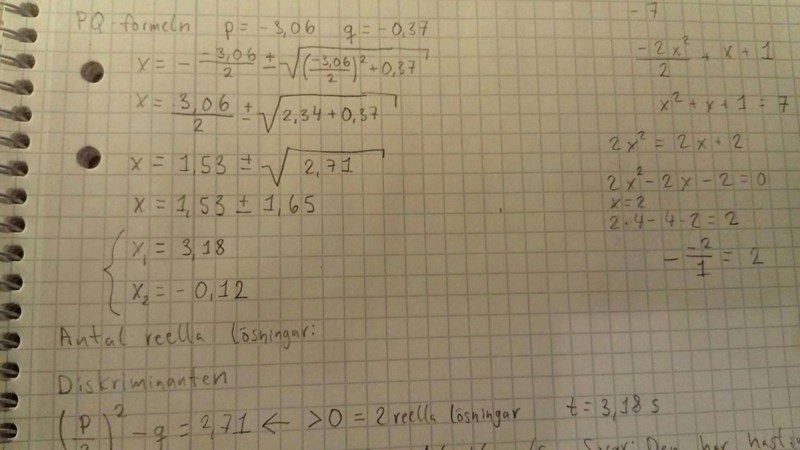 PQ-formeln p = -3,06 q = -0,37
x = - -3,06/2 ± √((-3,06/2)² + 0,37)
x = 3,06/2 ± √(2,34 + 0,37)
x = 1,53 ± √2,71
x = 1,53 ± 1,65
x₁ = 3,18
x₂ = -0,12
Antal reella lösningar:
Diskriminanten
(p/2)² - q = 2,71 ← > 0 = 2 reella lösningar t = 3,18 s
Svar: Den har
- 7
-2x²/2 + x + 1
x² + x + 1 = 7
2x² = 2x + 2
2x² - 2x - 2 = 0
x = 2
2·4 - 4 - 2 = 2
- -2/1 = 2